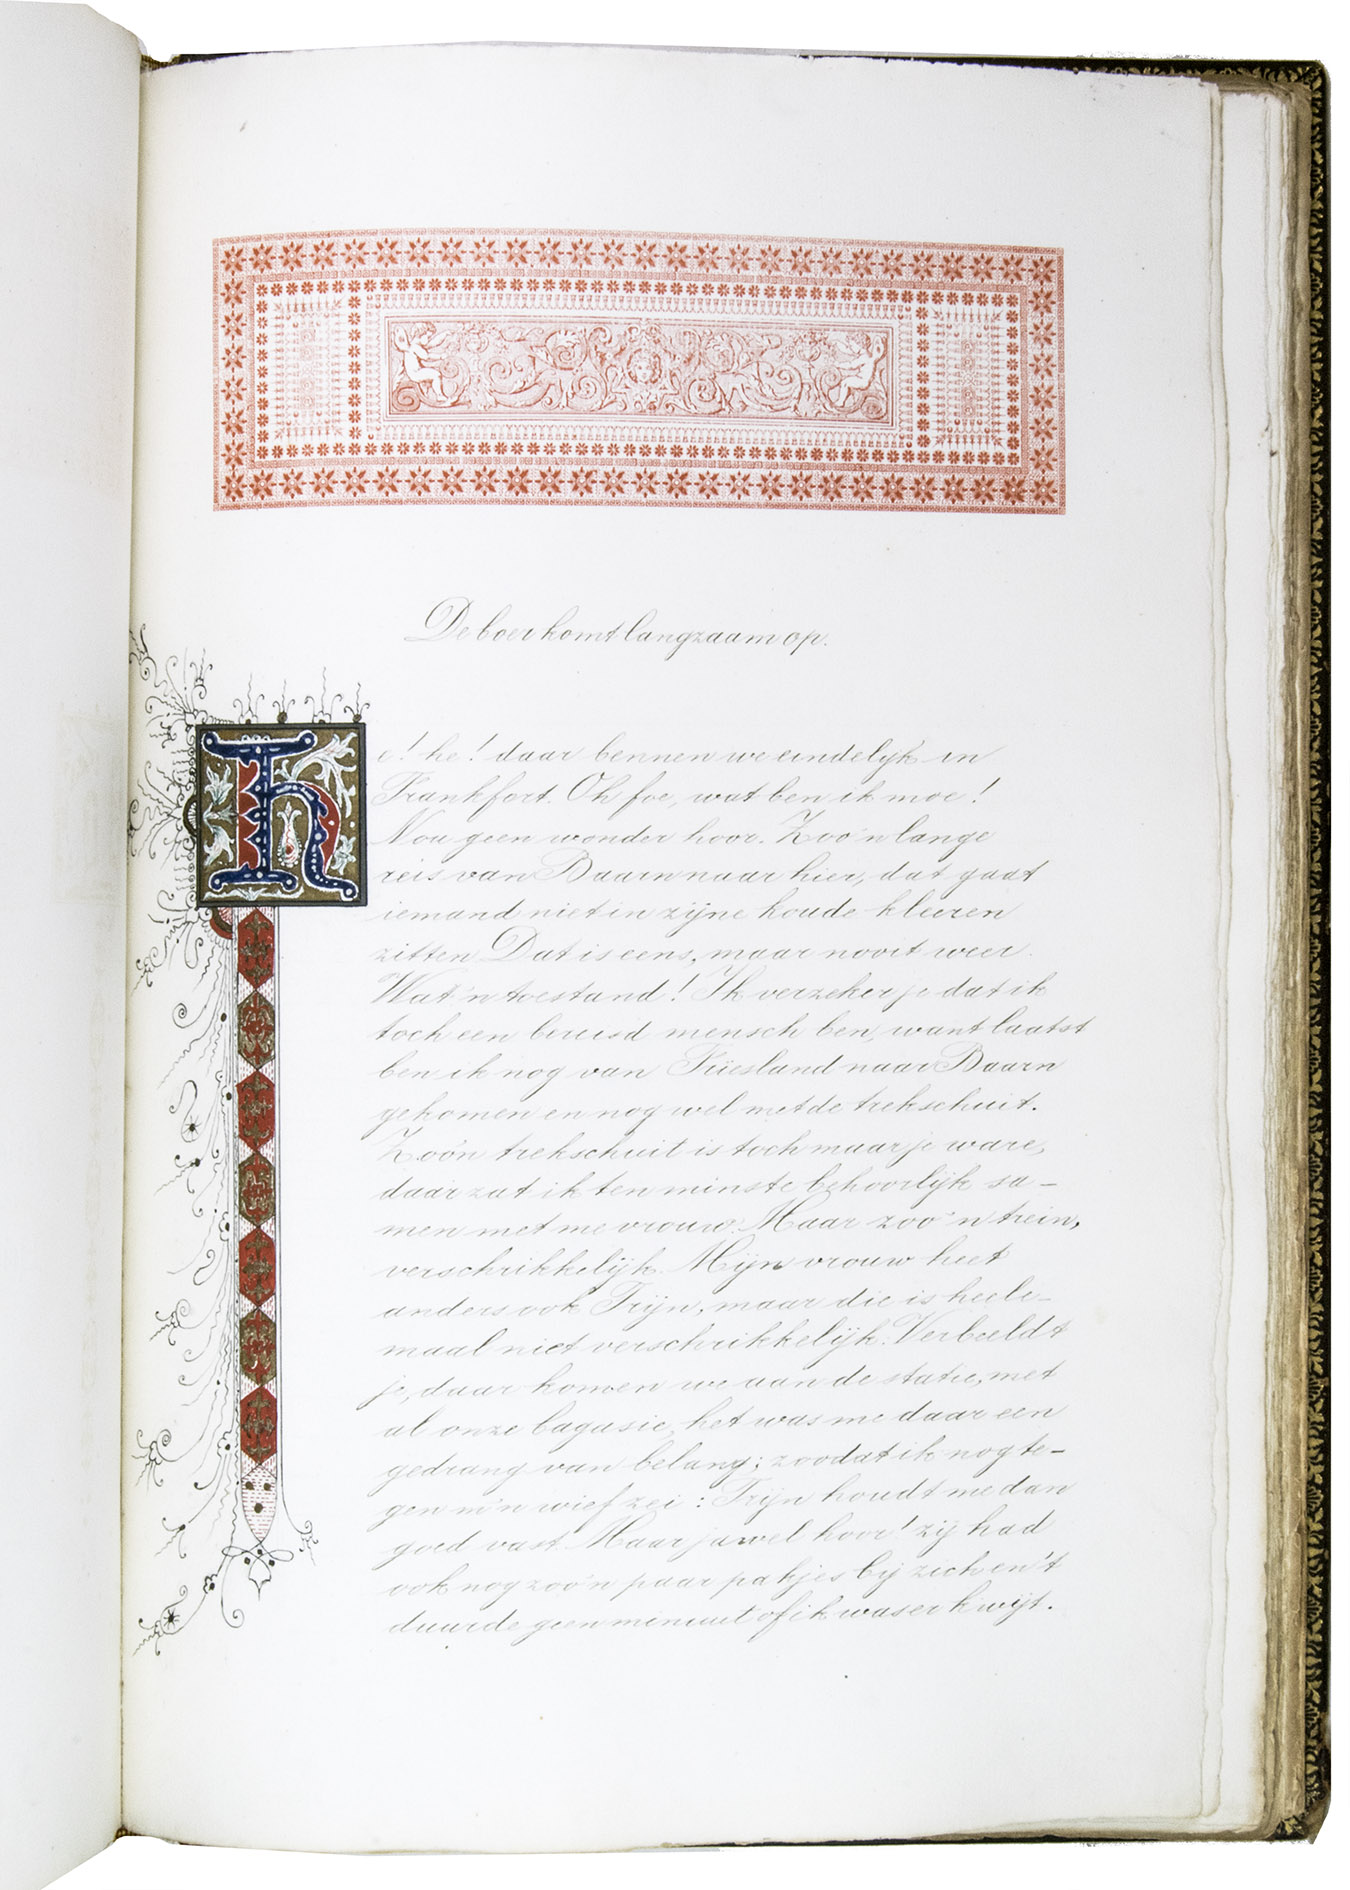 De boer komt langzaam op.
He! he! daar bennen we eindelijk in
Frankfort. Oh foe, wat ben ik moe!
Nou geen wonder hoor. Zoo'n lange
reis van Baarn naar hier, dat gaat
iemand niet in zijne houde kleeren
zitten Dat is eens, maar nooit weer.
Wat 'n toestand! Ik verzeker je dat ik
toch een bereisd mensch ben, want laatst
ben ik nog van Friesland naar Baarn
gekomen en nog wel met de trekschuit.
Zoo'n trekschuit is toch maar je ware,
daar zat ik ten minste behoorlijk sa-
men met me vrouw. Maar zoo'n trein,
verschrikkelijk. Mijn vrouw heet
anders ook Trijn, maar die is heele-
maal niet verschrikkelijk. Verbeeldt
je, daar komen we aan de statie, met
al onze bagasie, het was me daar een
gedrang van belang; zoodat ik nog te-
gen m'n wief zei: Trijn houdt me dan
goed vast. Maar jawel hoor! zij had
ook nog zoo'n paar pakjes bij zich en 't
duurde geen minuut of ik was er kwijt.